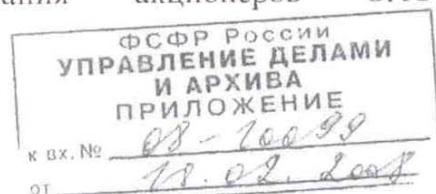 акционеров
ФСФР России
УПРАВЛЕНИЕ ДЕЛАМИ
И АРХИВА
ПРИЛОЖЕНИЕ
к вх. № 08-10099
от 18.02.2008